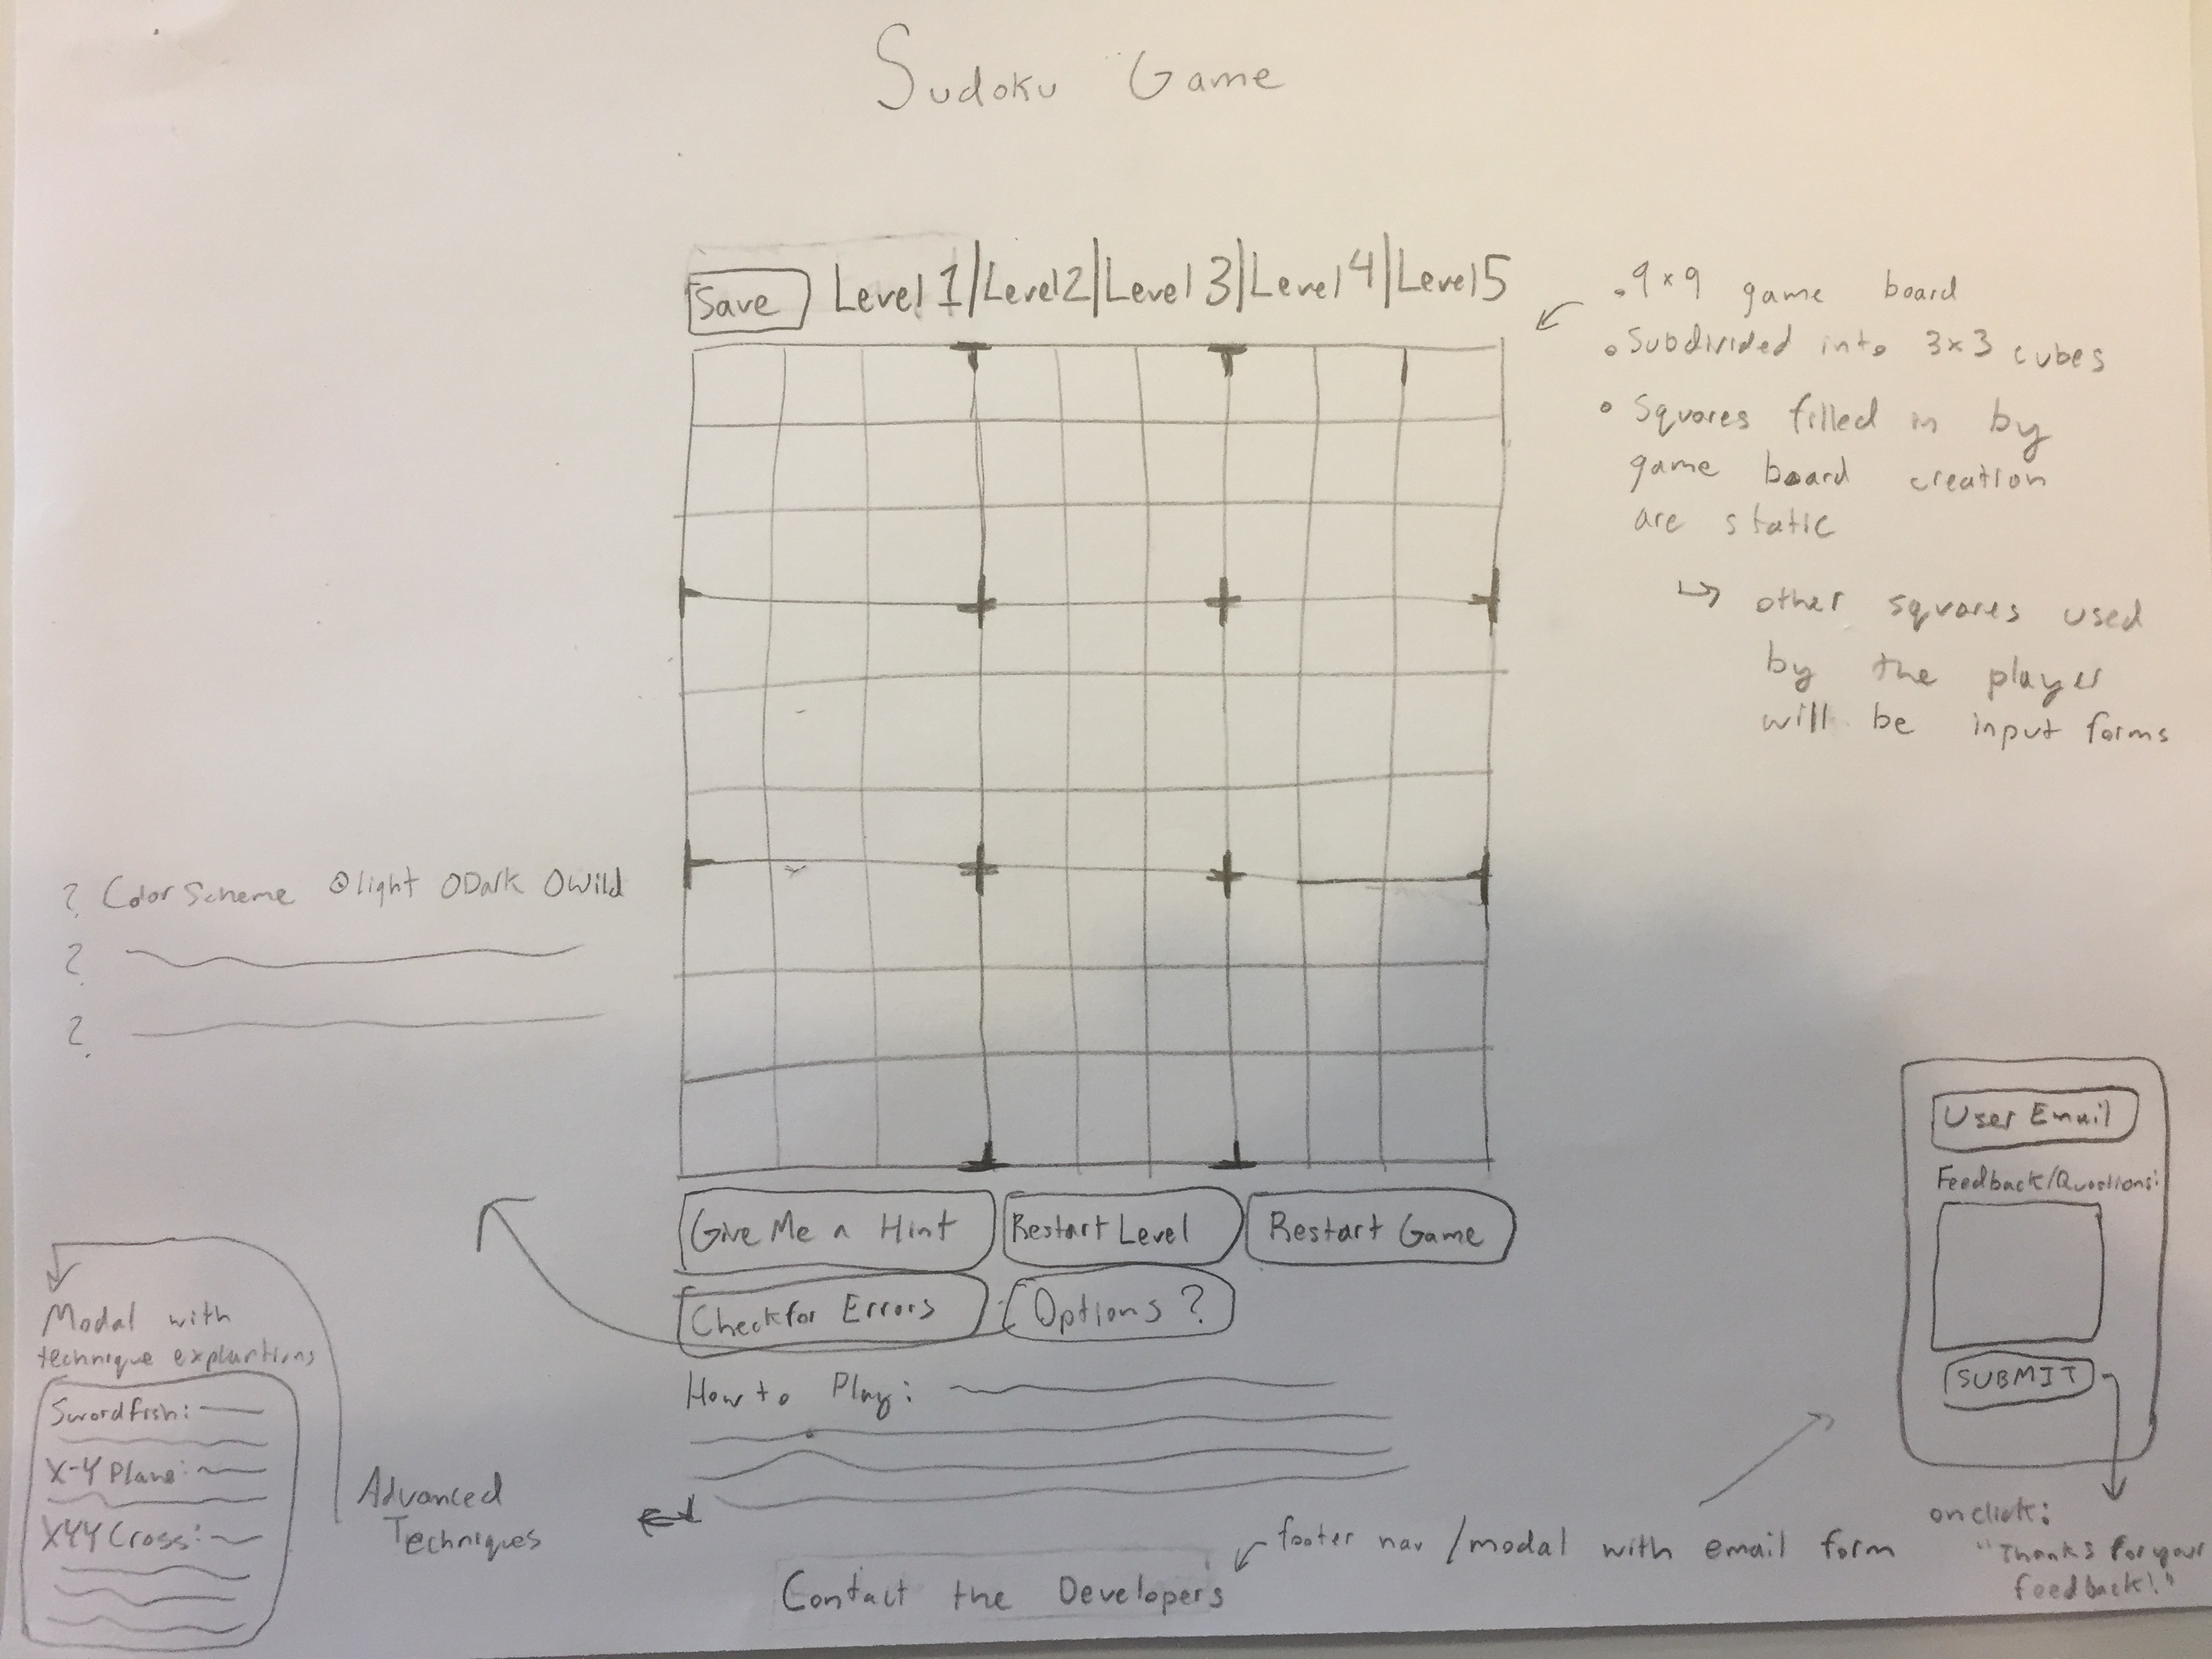 Sudoku Game
Save Level 1|Level2|Level 3|Level 4|Level5
• 9×9 game board
• Subdivided into 3×3 cubes
• Squares filled in by
game board creation
are static
↳ other squares used
by the player
will be input forms
? Color Scheme ⦿light ODark OWild
?
?
Give Me a Hint Restart Level Restart Game
Check for Errors Options ?
How to Play:
Modal with
technique
Swordfish:
X-Y Plane:
XYY Cross:
Advanced
Techniques
Contact the Developers
footer nav /modal with email form
User Email
Feedback/Questions:
SUBMIT
onclick:
"Thanks for your
feedback!"